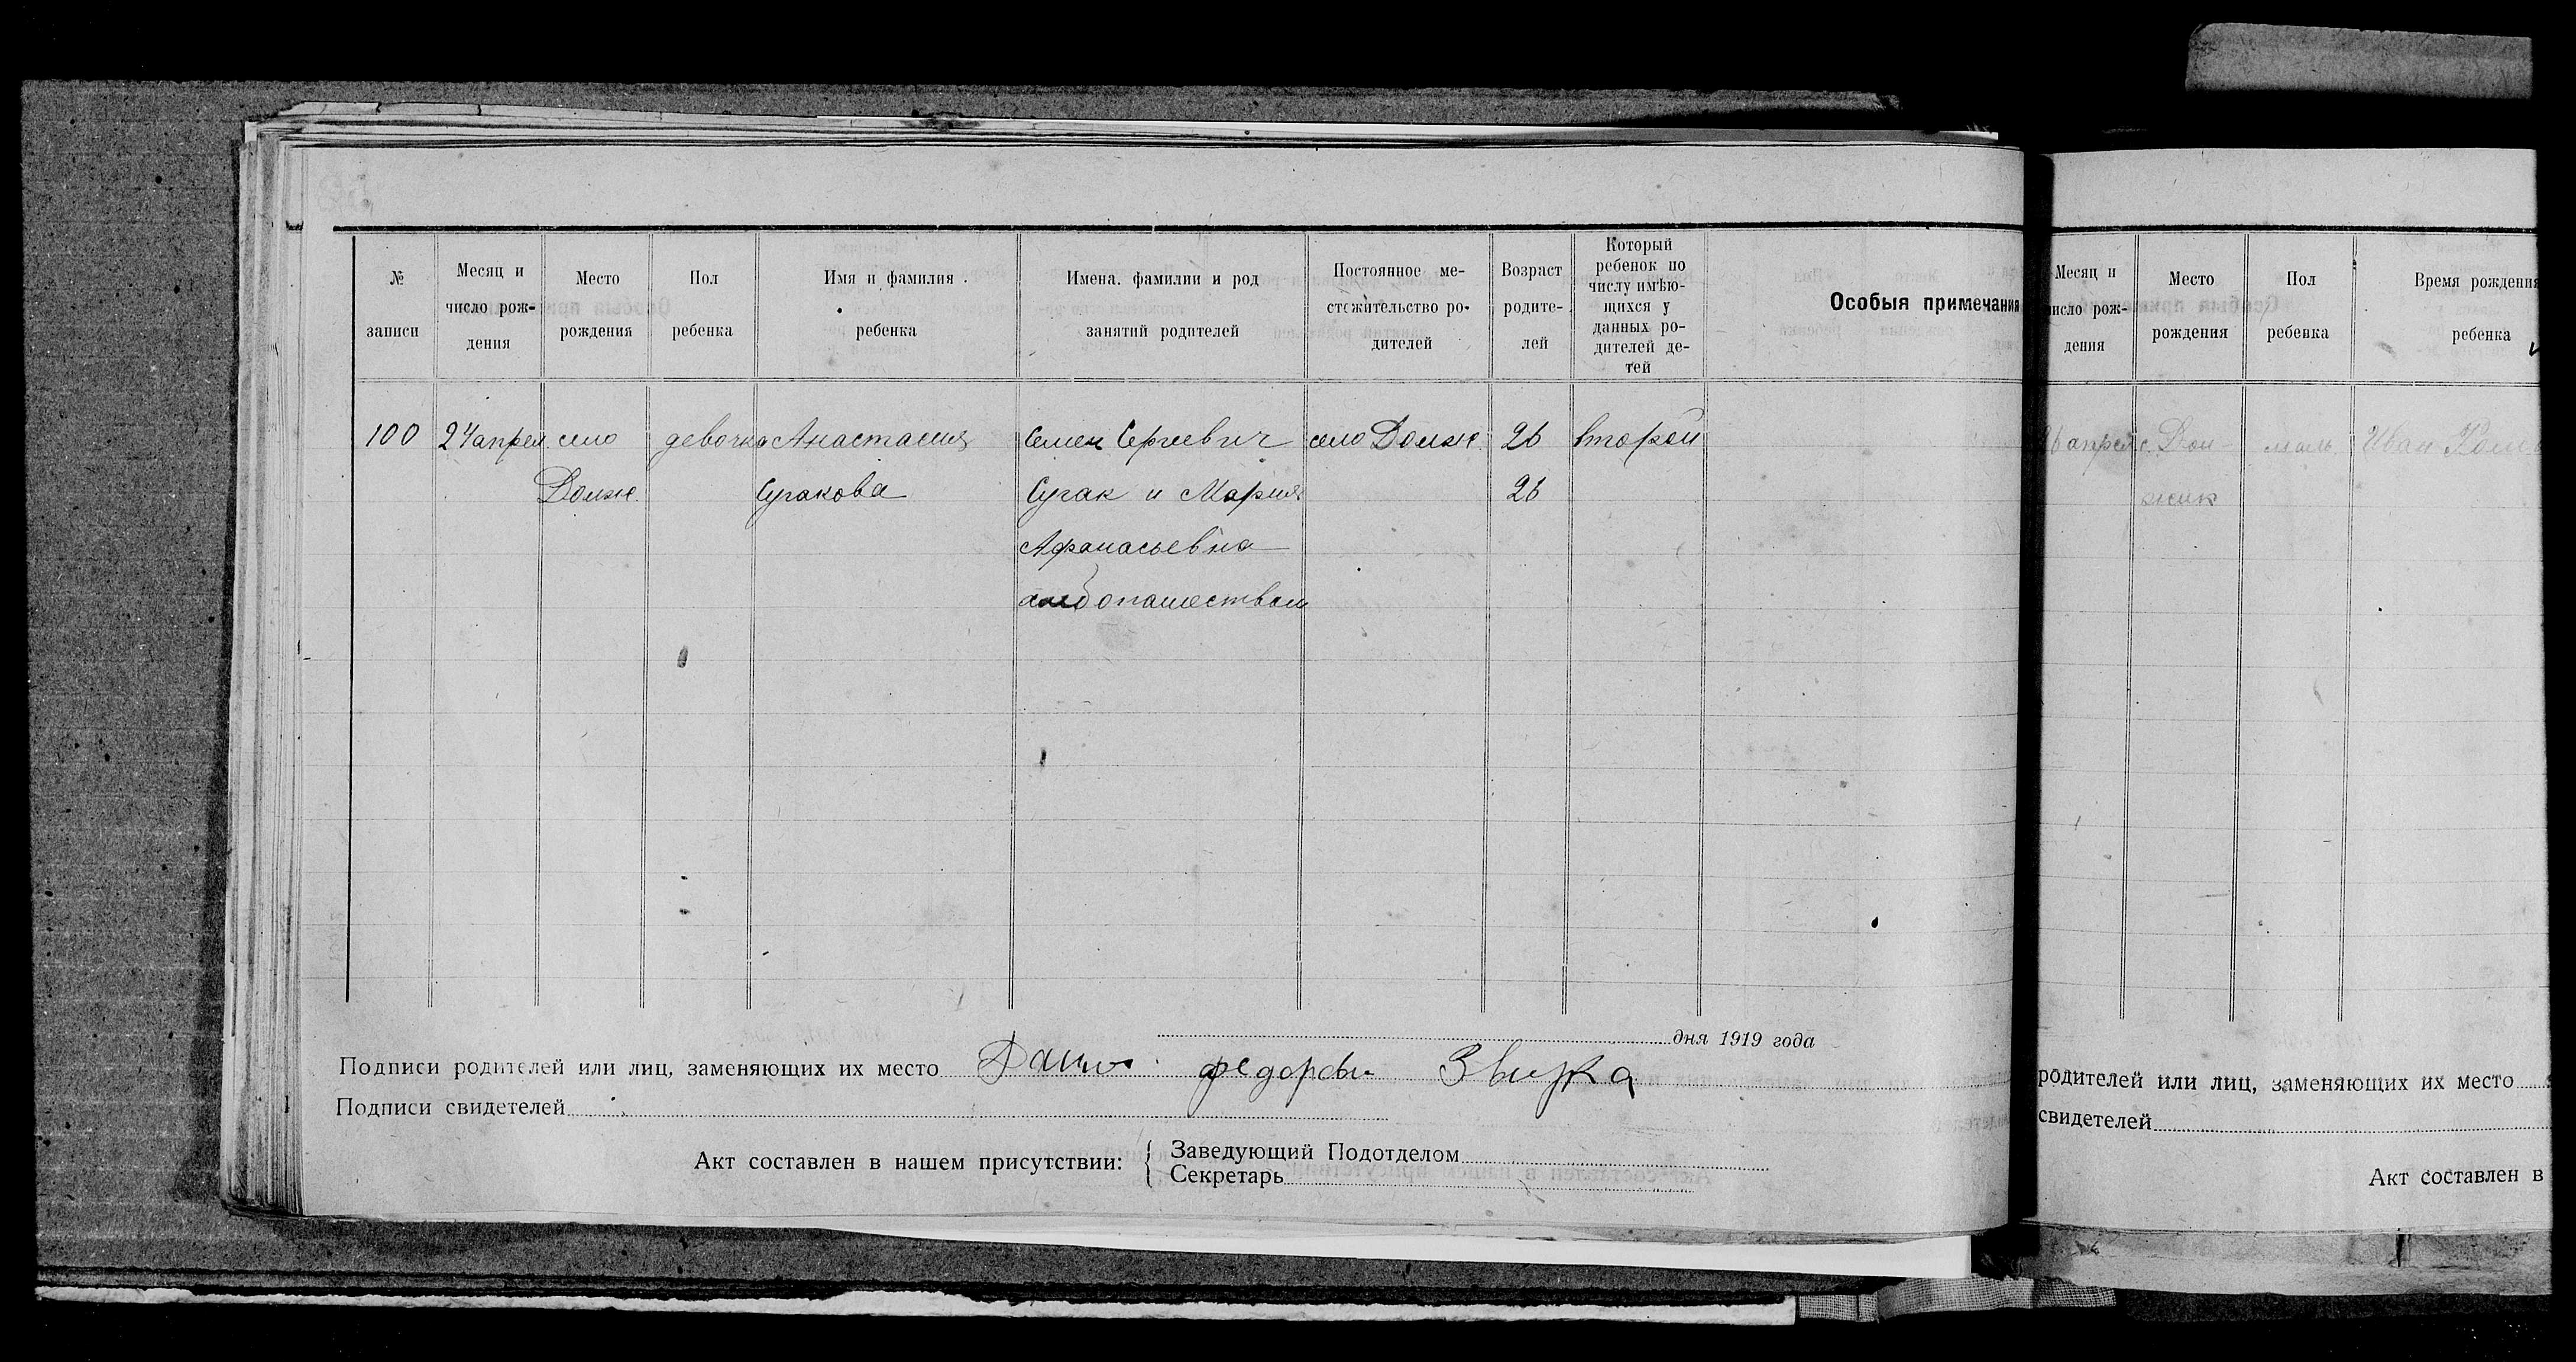 № записи
Месяц и число рож-дения
Место рождения
Пол ребенка
Имя и фамилия ребенка
Имена. фамилии и род занятий родителей
Постоянное ме-стожительство ро-дителей
Возраст родите-лей
Который ребенок по числу имѣю-щихся у данных ро-дителей де-тей
Особыя примечания
100 24 апрел село девочка Анастасия Семен Сергеевич село Должик 26 второй
Должик Сугакова Сугак и Мария 26
Афанасьевна
хлебопашеством
дня 1919 года
Подписи родителей или лиц, заменяющих их место федоров Звиука
Подписи свидетелей
Акт составлен в нашем присутствии:
Заведующий Подотделом
Секретарь
Месяц и число рож-дения
Место рождения
Пол ребенка
Время рождения ребенка
26 апреля с. Дол- маль. Иван
жик
родителей или лиц, заменяющих их место
свидетелей
Акт составлен в